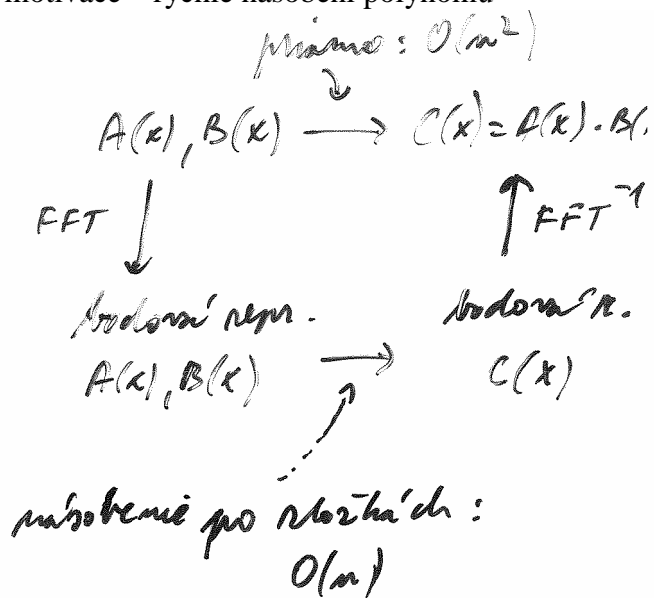 motivace – rychlé násobení polynomů
priamo : O(n²)
A(x), B(x) → C(x) = A(x) · B(
FFT FFT⁻¹
bodová repr. bodová r.
A(x), B(x) → C(x)
násobenie po zložkách :
O(n)